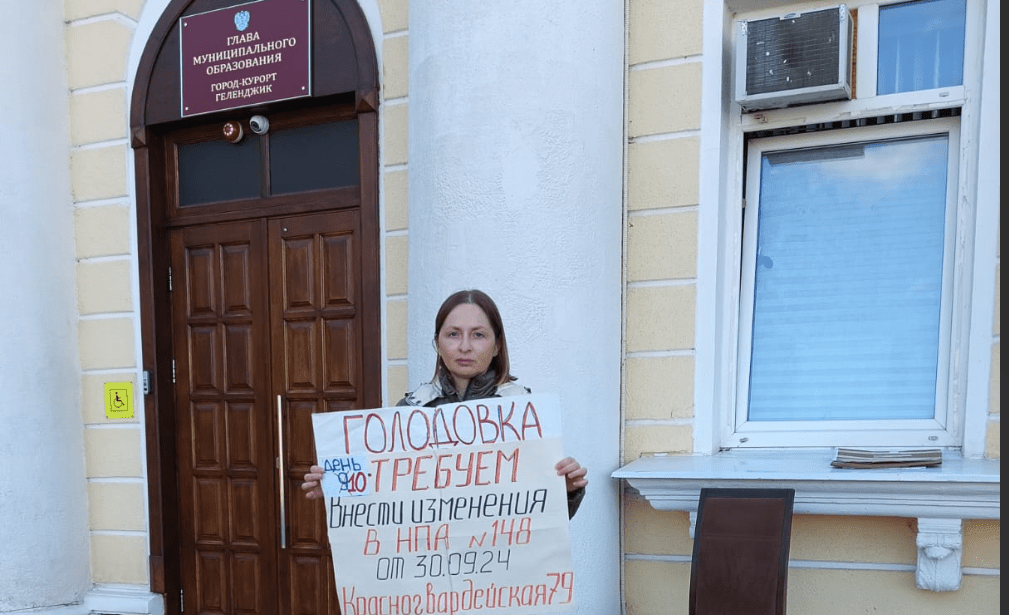 ГЛАВА
МУНИЦИПАЛЬНОГО
ОБРАЗОВАНИЯ
ГОРОД-КУРОРТ
ГЕЛЕНДЖИК
ГОЛОДОВКА
ДЕНЬ
10
ТРЕБУЕМ
Внести изменения
В НПА №148
от 30.09.24
Красногвардейская79